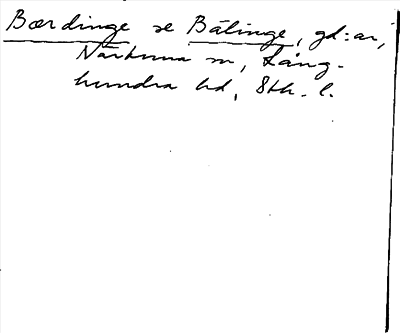 Bærdinge se Bälinge, gd:ar,
Närtuna sn, Lång-
hundra hd, Sth. l.